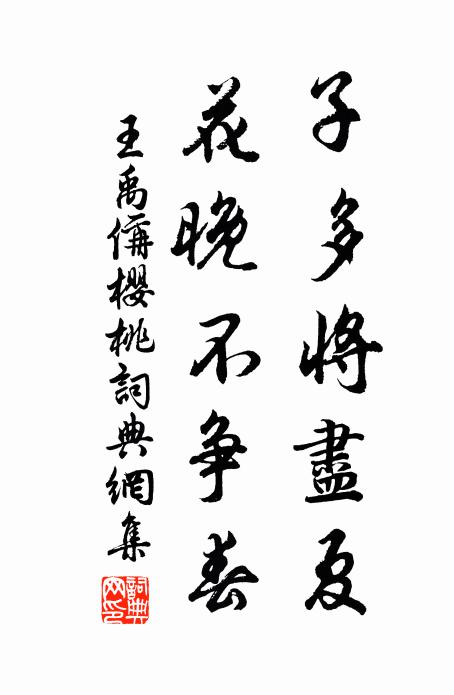 子多將盡夏
花晚不争春
王禹偁櫻桃詞典網集
詞典
网印